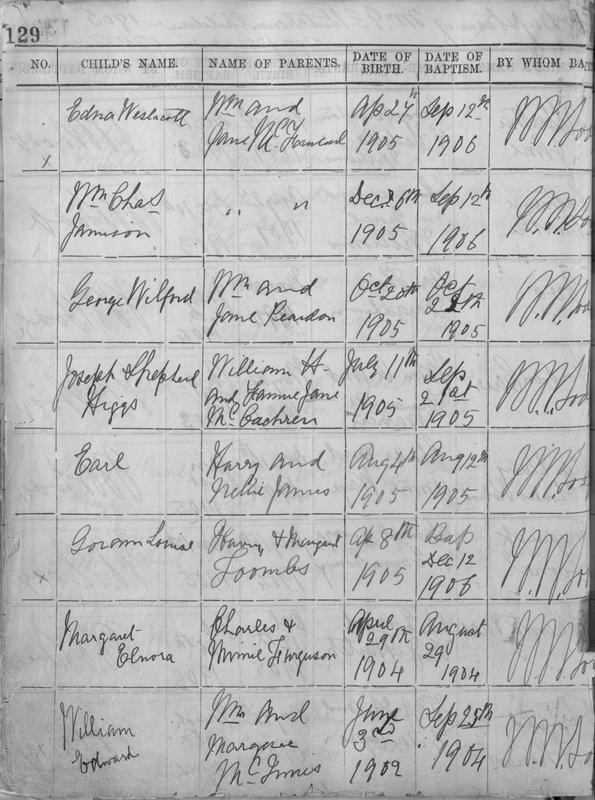 129
NO. CHILD'S NAME. NAME OF PARENTS. DATE OF BIRTH. DATE OF BAPTISM. BY WHOM BA
Edna Westacott Wm and Ap 27th Sep 12th
x Jane 1905 1906
Wm Chas " " Dec 6th Sep 12th
Jamison 1905 1906
George Wilford Wm and Oct 20th Oct 22th
Jane Reardon 1905 1905
Joseph Shepherd William H- July 11th Sep
Higgs and Fannie Jane 21st
McEachren 1905 1905
Earl Harry and Aug 4th Aug 12th
Nellie James 1905 1905
Louise Harvey & Margaret Ap 8th Bap
x Toombs 1905 Dec 12
1906
Margaret Charles & April August
Elnora Minnie Ferguson 29th 29
1904 1904
William Wm and June Sep 25th
Edward 3rd
McInnis 1902 1904